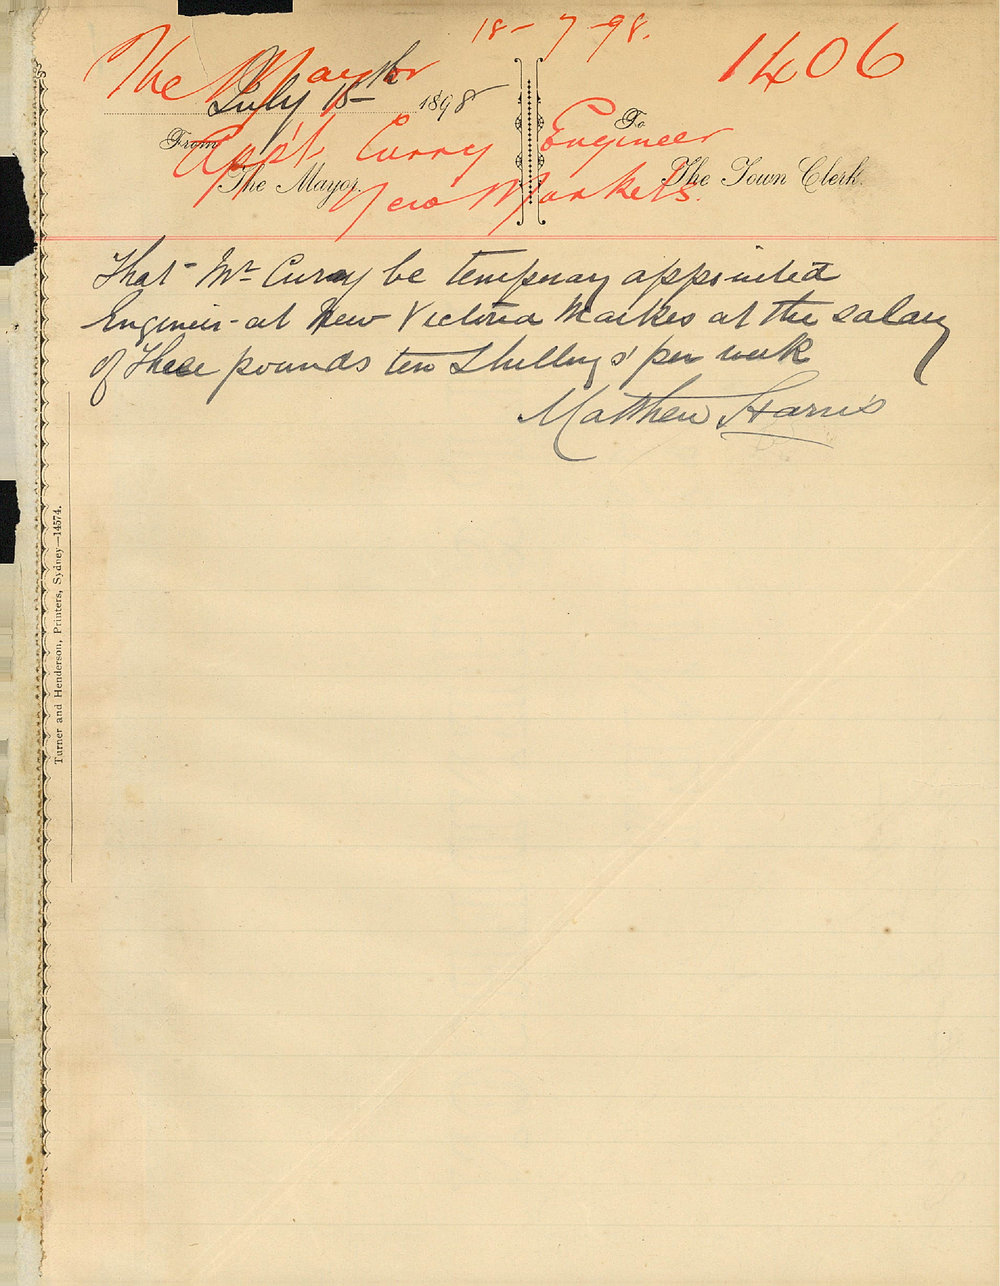 18-7-98.
1406
The Mayor
July 18th 1898
From
The Mayor.
To
The Town Clerk.
App't Curry Engineer
New Markets.
That Mr Curray be temperay appointed
Engineer at New Victoria Markes at the salary
of three pounds ten Shillings per week
Matthew Harris
Turner and Henderson, Printers, Sydney—14574.